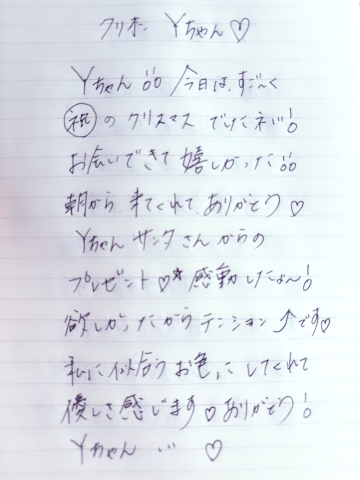 クリホー Yちゃん♡
Yちゃん!! 今日は、すご〜く
㊗のクリスマスでしたネ!!
お会いできて嬉しかった!!
朝から、来てくれて、ありがとう♡
Yちゃんサンタさんからの
プレゼント♡★感動したょ〜!
欲しかったからテンション↑です♡
私に似合うお色にしてくれて
優しさ感じます♡ありがとう!
Yちゃん … ♡